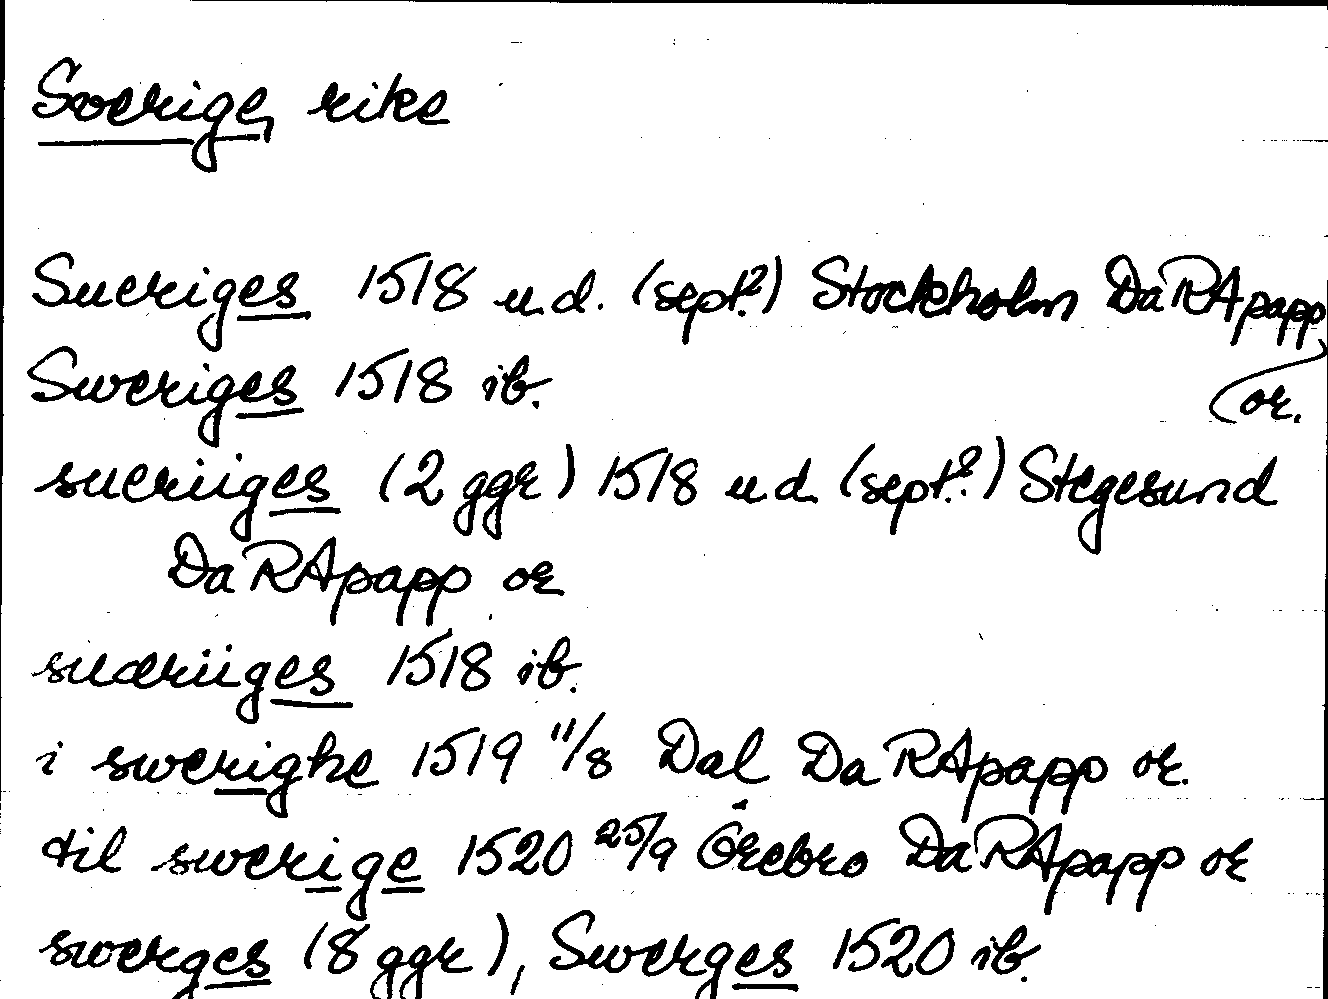 Sverige, rike
Sueriges 1518 u.d. (sept?) Stockholm DaRApapp
Sweriges 1518 ib. or.
sueriiges (2 ggr) 1518 u.d. (sept?) Stegesund
DaRApapp or
suæriiges 1518 ib.
i swerighe 1519 11/8 Dal DaRApapp or.
til swerige 1520 25/9 Örebro DaRApapp or
swerges (8 ggr), Swerges 1520 ib.